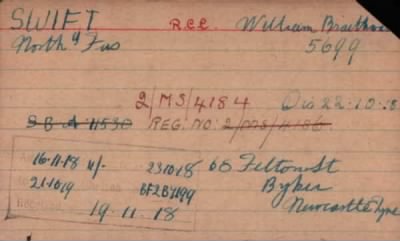 SWIFT R.C.C. William
North'd Fus 5699
2/MS/4184 Dis 22.10.18
S.B.A. 11530 REG. NO: 2/MS/4186
16.11.18 4/- 23.10.18 68 Felton St
21.10.19 BF2B4199 Byker
19.11.18 Newcastle Tyne